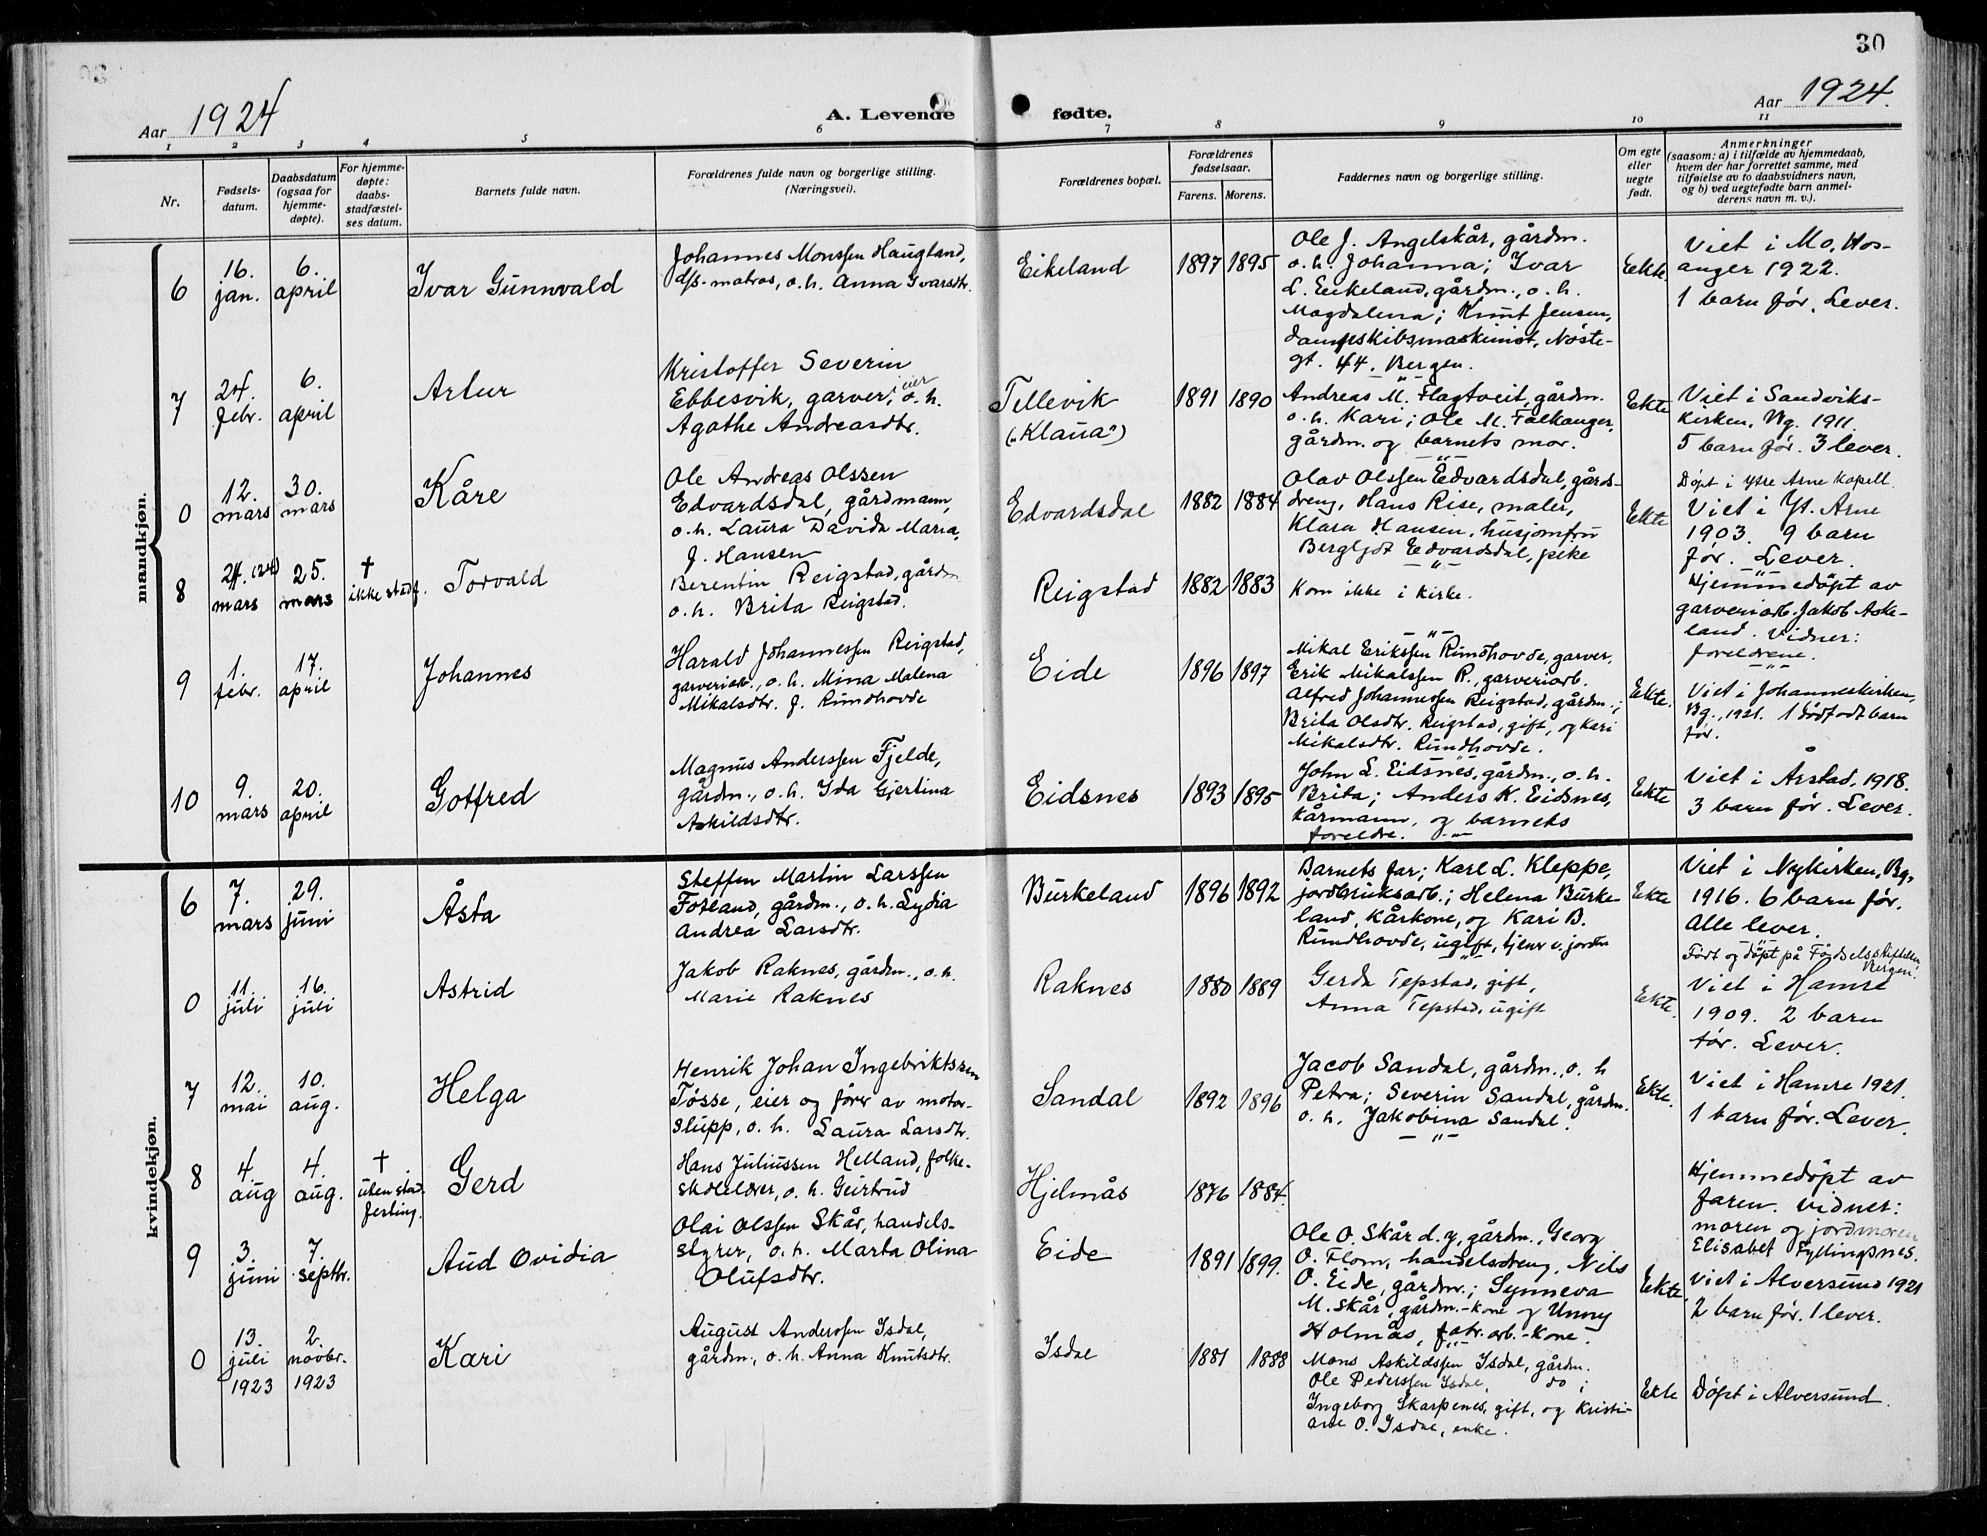 30
Aar 1924
A. Levende fødte.
Aar 1924.
1 2 3 4 5 6 7 8 9 10 11
Nr.
Fødsels-
datum.
Daabsdatum
(ogsaa for
hjemme-
døpte).
For hjemme-
døpte:
daabs-
stadfæstel-
ses datum.
Barnets fulde navn.
Forældrenes fulde navn og borgerlige stilling.
(Næringsvei).
Forældrenes bopæl.
Forældrenes
fødselsaar.
Farens. Morens.
Faddernes navn og borgerlige stilling.
Om egte
eller
uegte
født.
Anmerkninger
(saasom: a) i tilfælde av hjemmedaab,
hvem der har forrettet samme, med
tilføielse av to daabsvidners navn,
og b) ved uegtefødte barn anmel-
derens navn m. v.).
mandkjøn.
6
16.
jan.
6.
april
Ivar Gunnvald
Johannes Monssen Haugland,
d/s-matros, o.h. Anna Ivarsdtr.
Eikeland
1897 1895
Ole J. Angelskår, gårdm.
o.h. Johanna; Ivar
L. Eikeland, gårdm., o.h.
Magdalena; Knut Jensen,
dampskibsmaskinist, Nøste-
gt. 44. Bergen.
Ekte
Viet i Mo, Hos-
anger 1922.
1 barn før. Lever.
7
24.
febr.
6.
april
Artur
Kristoffer Severin
Ebbesvik, garverieier, o.h.
Agathe Andreasdtr.
Tellevik
("Klaua")
1891 1890
Andreas M. Flagtveit, gårdm.
o.h. Kari; Ole M. Falkanger,
gårdm. og barnets mor.
Ekte
Viet i Sandviks-
kirken, Bg. 1911.
5 barn før. 3 lever.
0
12.
mars
30.
mars
Kåre
Ole Andreas Olssen
Edvardsdal, gårdmann,
o.h. Laura Davida Maria,
f. Hansen
Edvardsdal
1882 1884
Olav Olssen Edvardsdal, gårds-
dreng, Hans Rise, maler,
Klara Hansen, husjomfru
Bergljot Edvardsdal, pike
Ekte
Døpt i Ytre Arne Kapell.
Viet i Yt. Arne
1903. 9 barn
før. Lever.
8
24. (24)
mars
25.
mars
†
ikke stadf.
Torvald
Berentin Reigstad, gårdm
o.h. Brita Reigstad.
Reigstad
1882 1883
Kom ikke i kirke.
Hjemmedøpt av
garveriarb. Jakob Aske-
land. Vidner:
foreldrene.
9
1.
febr.
17.
april
Johannes
Harald Johannessen Reigstad,
garveriarb., o.h. Mina Malena
Mikalsdtr. f. Rundhovde
Eide
1896 1897
Mikal Erikssen Rundhovde, garver,
Erik Mikalssen R., garveriarb.
Alfred Johannessen Reigstad, gårdm.;
Brita Olsdtr. Reigstad, gift, og Kari
Mikalsdtr. Rundhovde.
Ekte.
Viet i Johanneskirken,
Bg., 1921. 1 dødfødt barn
før.
10
9.
mars
20.
april
Gotfred
Magnus Anderssen Fjelde,
gårdm., o.h. Ida Gjertina
Askildsdtr.
Eidsnes
1893 1895
John L. Eidsnes, gårdm., o.h.
Brita; Anders K. Eidsnes,
kårmann, og barnets
foreldre.
Ekte
Viet i Årstad, 1918.
3 barn før. Lever.
kvindekjøn.
6
7.
mars
29.
juni
Åsta
Steffen Martin Larssen
Fotland, gårdm., o.h. Lydia
Andrea Larsdtr.
Burkeland
1896 1892
Barnets far; Karl L. Kleppe,
jordbruksarb.; Helena Burke-
land, kårkone, og Kari B.
Rundhovde, ugift, tjener v. jorden
Ekte
Viet i Nykirken, Bg.,
1916. 6 barn før.
Alle lever.
0
11.
juli
16.
juli
Astrid
Jakob Raknes, gårdm., o.h.
Marie Raknes
Raknes
1880 1889
Gerda Tepstad, gift,
Anna Tepstad, ugift
Ekte.
Født og døpt på Fødselsstiftelsen
Bergen.
Viet i Hamre
1909. 2 barn
før. Lever.
7
12.
mai
10.
aug.
Helga
Henrik Johan Ingebriktssen
Tøsse, eier og fører av motor-
slupp, o.h. Laura Larsdtr.
Sandal
1892 1896
Jacob Sandal, gårdm., o.h
Petra; Severin Sandal, gårdm.
o.h. Jakobina Sandal.
Ekte.
Viet i Hamre 1921.
1 barn før. Lever.
8
4.
aug
4.
aug.
†
uten stad-
festing.
Gerd
Hans Juliussen Helland, folke-
skolelærer, o.h. Geirtrud
Hjelmås
1876 1884.
Hjemmedøpt av
faren. Vidner:
moren og jordmoren
Elisabet Fyllingsnes.
9
3.
juni
7.
septbr.
Aud Ovidia
Olai Olssen Skår, handels-
styrer, o.h. Marta Olina
Olufsdtr.
Eide
1891 1899.
Ole O. Skår d.y, gårdm., Georg
O. Flom, handelsdreng, Nils
O. Eide, gårdm.; Synneva
M. Skår, gårdm.-kone og Unny
Holmås, fabr.arb.-kone
Ekte.
Viet i Alversund 1921
2 barn før. 1 lever.
0
13.
juli
1923
2.
novbr.
1923
Kari
August Anderssen Isdal,
gårdm., o.h. Anna Knutsdtr.
Isdal
1881 1888
Mons Askildssen Isdal, gårdm.
Ole Pederssen Isdal, do;
Ingeborg Skarpenes, gift, og Kristi-
ane O. Isdal, enke.
Ekte
Døpt i Alversund.